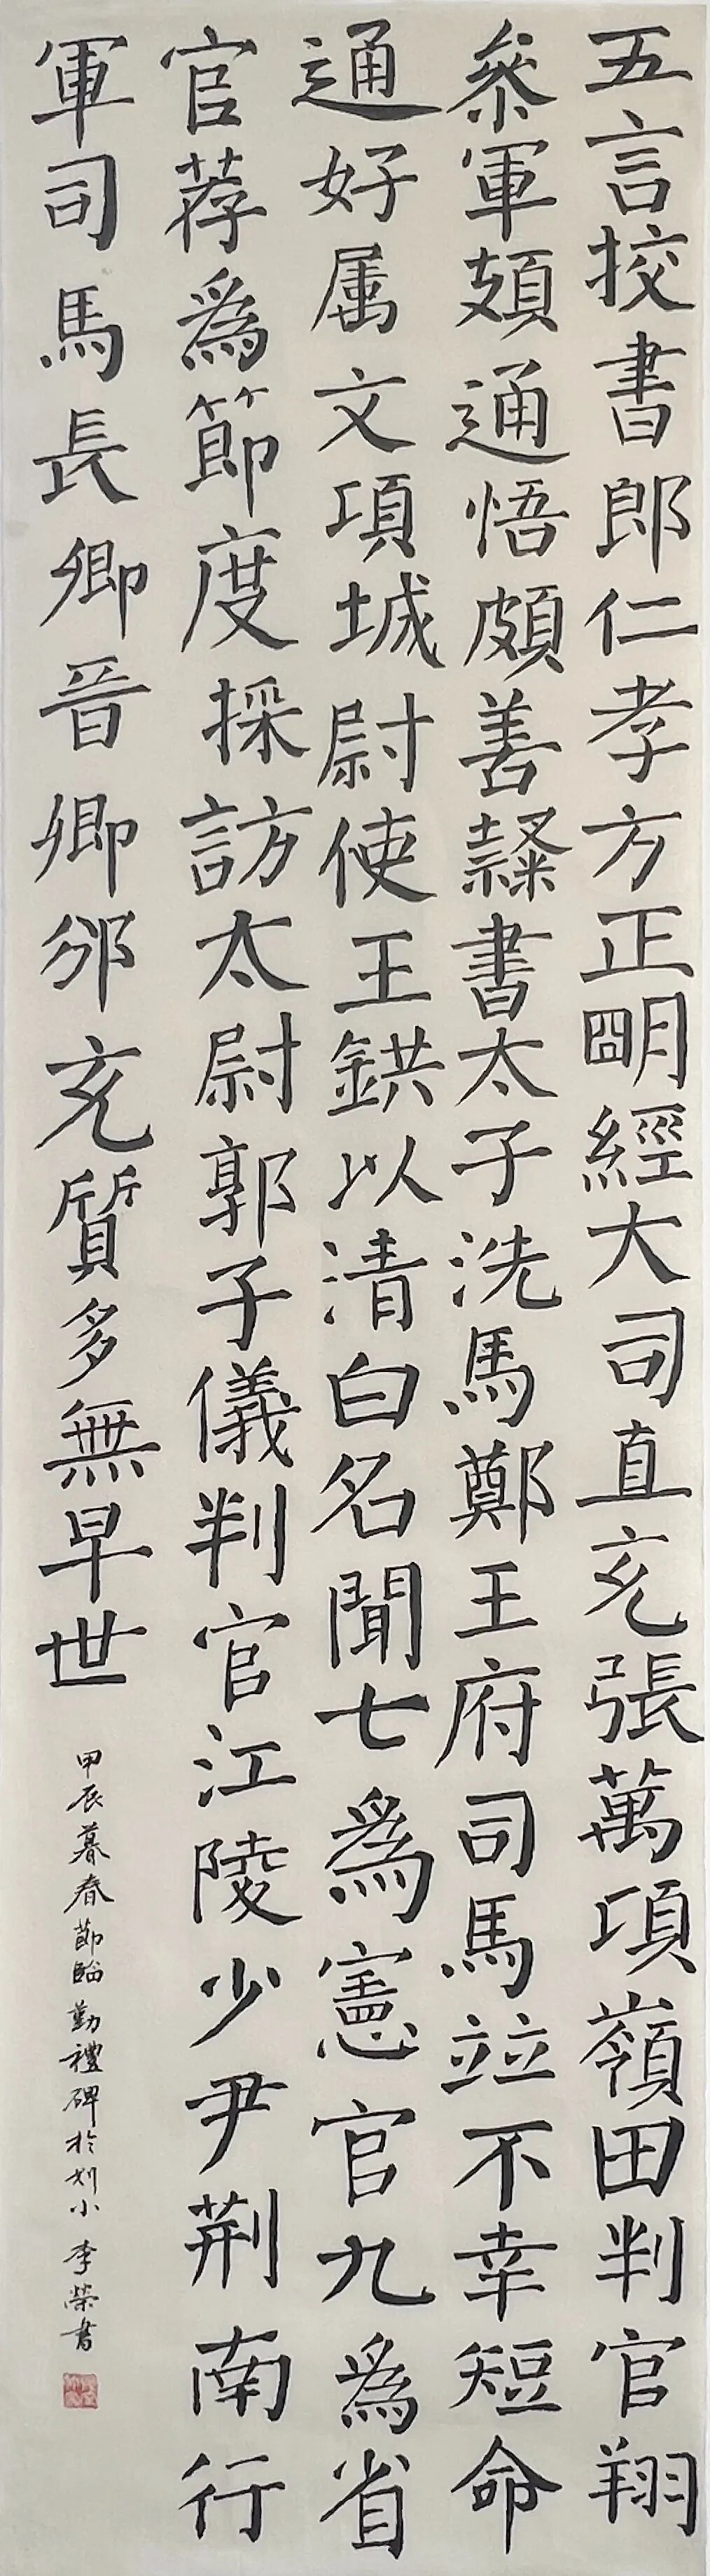 五言挍書郎仁孝方正明經大司直充張萬項嶺田判官翔
叅軍頍通悟頗善隸書太子洗馬鄭王府司馬竝不幸短命
通好属文項城尉使王鉷以清白名聞七為憲官九為省
官荐為節度採訪太尉郭子儀判官江陵少尹荆南行
軍司馬長卿晉卿邠充質多無早世
甲辰暮春節臨勤禮碑於刘小 李榮書